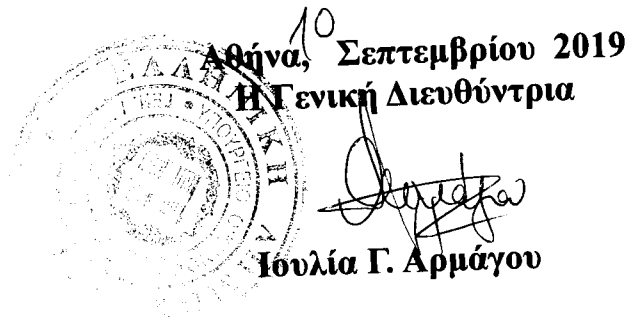 Αθήνα, 10 Σεπτεμβρίου 2019
Η Γενική Διευθύντρια
Ιουλία Γ. Αρμάγου
ΕΛΛΗΝΙΚΗ
ΥΠΟΥΡΓΕΙΟ